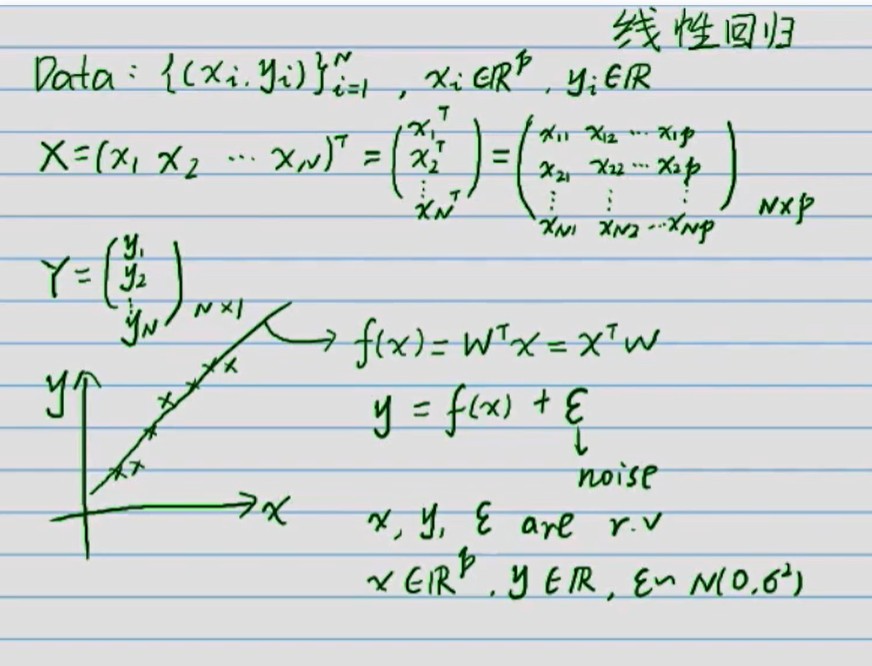 线性回归
Data: {(xᵢ, yᵢ)}ᵢ₌₁ᴺ, xᵢ ∈ ℝᵖ, yᵢ ∈ ℝ
X = (x₁ x₂ ⋯ x_N)ᵀ = (x₁ᵀ x₂ᵀ ⋮ x_Nᵀ) = (x₁₁ x₁₂ ⋯ x₁p x₂₁ x₂₂ ⋯ x₂p ⋮ ⋮ ⋮ x_N1 x_N2 ⋯ x_Np) N×p
Y = (y₁ y₂ ⋮ y_N) N×1
f(x) = Wᵀx = xᵀW
y
y = f(x) + ε
noise
x
x, y, ε are r.v
x ∈ ℝᵖ, y ∈ ℝ, ε ~ N(0, σ²)